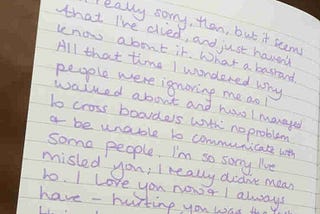 really sorry, then, but it seems
that I've died, and just haven't
know about it. What a bastard.
All that time I wondered why
people were ignoring me as I
walked about and how I managed
to cross boarders with no problem
& be unable to communicate with
some people. I'm so sorry I've
misled you; I really didn't mean
to. I love you now & I always
have – hurting you was the